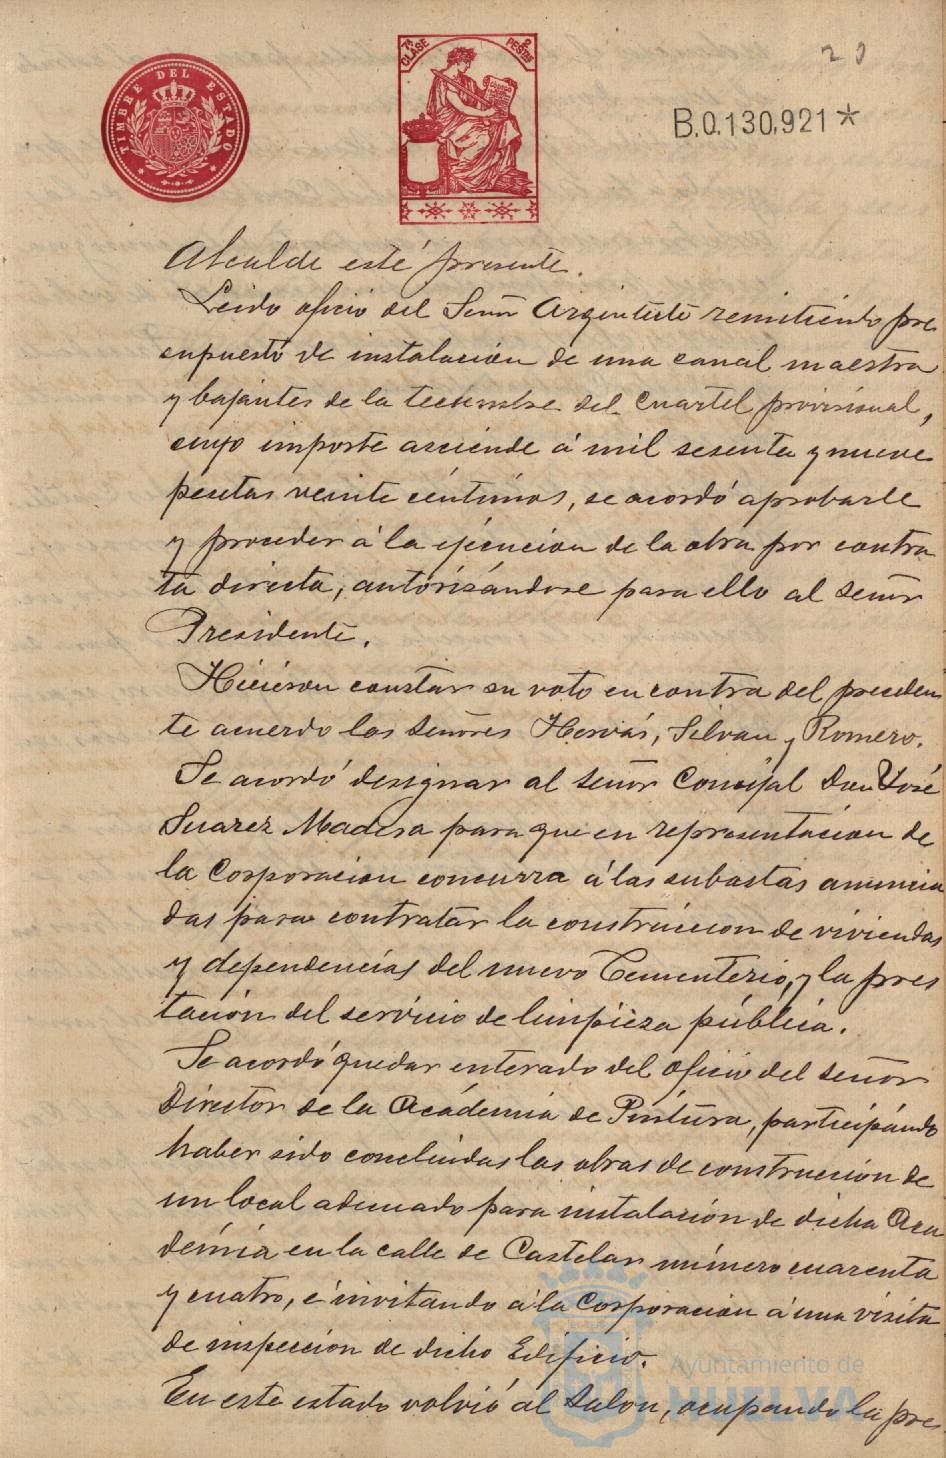 TIMBRE DEL ESTADO
7ª CLASE
2 PESTAS
20
B.0.130.921*
Alcalde esté presente.
Leido oficio del Señor Arquitecto remitiendo pre
supuesto de instalación de una canal maestra
y bajantes de la techumbre del Cuartel provisional,
cuyo importe asciende á mil sesenta y nueve
pesetas veinte céntimos, se acordó aprobarle
y proceder á la ejecucion de la obra por contra
ta directa, autorizándose para ello al señor
Presidente.
Hicieron constar su voto en contra del preceden
te acuerdo los señores Hervás, Silvan y Romero.
Se acordó designar al señor Concejal Don José
Suarez Madera para que en representacion de
la Corporacion concurra á las subastas anuncia
das para contratar la construccion de viviendas
y dependencias del nuevo Cementerio, y la pres
tación del servicio de limpieza pública.
Se acordó quedar enterado del oficio del señor
Director de la Académia de Pintura, participándo
haber sido concluidas las obras de construcción de
un local adecuado para instalación de dicha Aca
démia en la calle de Castelar número cuarenta
y cuatro, é invitando á la Corporacion á una visita
de inspección de dicho Edificio.
En este estado volvió al Salon, ocupando la pres
Ayuntamiento de
HUELVA